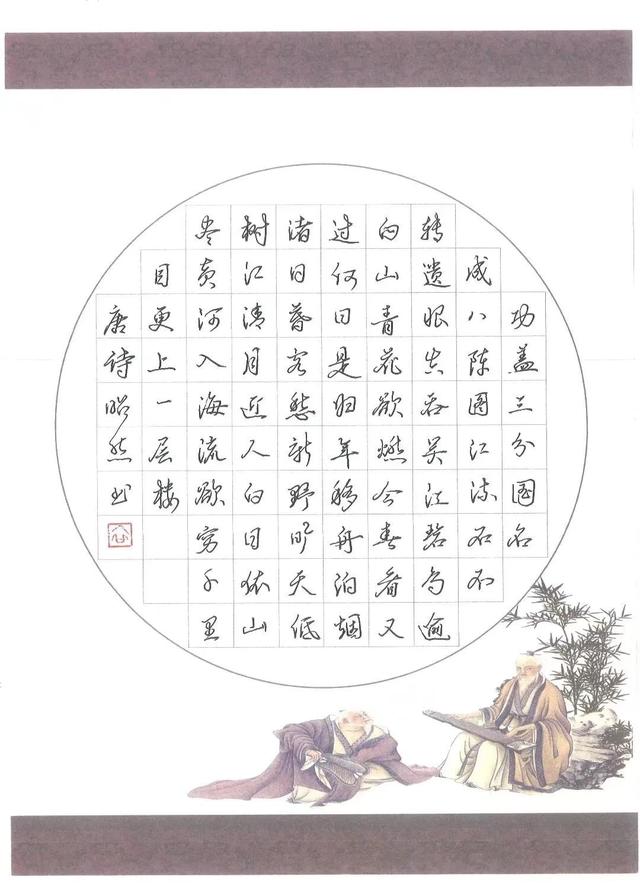 功盖三分国名
成八陈图江流石不
转遗恨失吞吴江碧鸟逾
白山青花欲燃今春看又
过何日是归年移舟泊烟
渚日暮客愁新野旷天低
树江清月近人白日依山
尽黄河入海流欲穷千里
目更上一层楼
唐诗昭然书